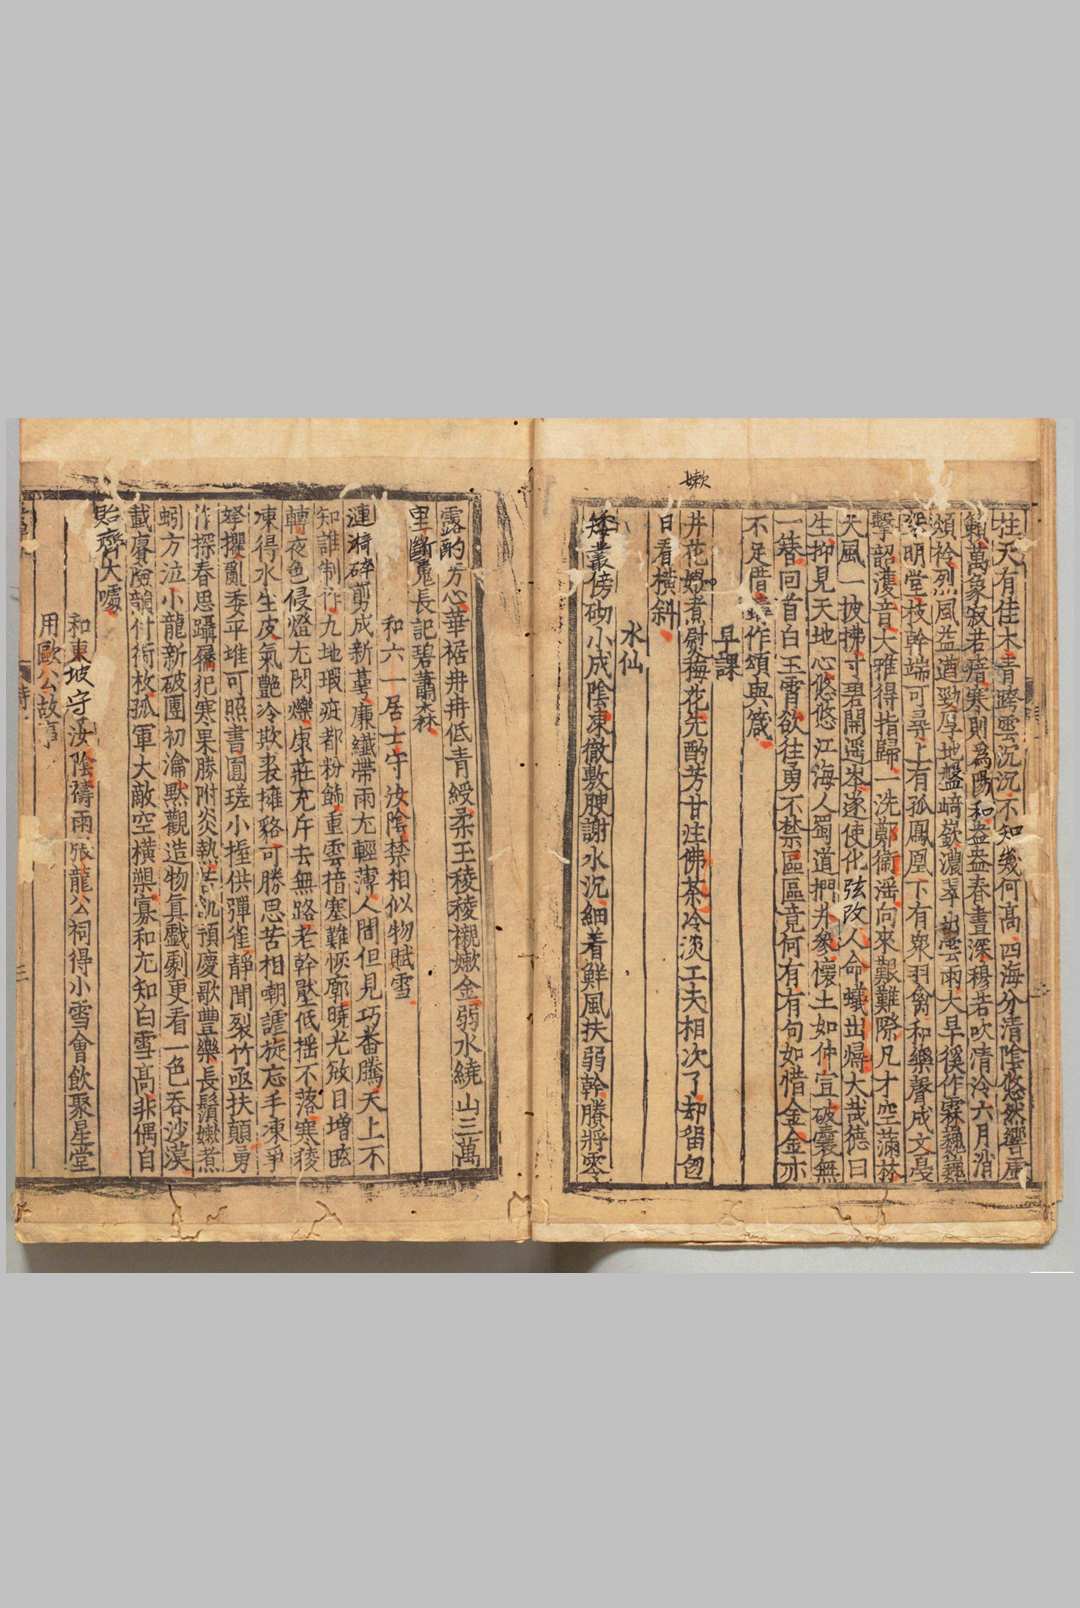 嫰
柱天有佳木青跨雲沉沉不知幾何高四海分清陰悠然響虛
籟萬象寂若瘖寒則為陽和盎盎春晝深穆若吹清泠六月消
煩衿烈風益遒勁厚地盤崎嶔濃翠起雲雨大旱徯作霖巍巍
架明堂枝幹端可尋上有孤鳳凰下有衆羽禽和樂聲成文是
擊韶濩音大雅得指歸一洗鄭衞滛向來艱難際凡才空滿林
天風一披拂寸碧開遥岑遂使化弦改人命蟻出㝵大哉德曰
生抑見天地心悠悠江海人蜀道捫井參懷土如仲宣破囊無
一簪回首白玉霄欲往勇不禁區區竟何有有句如惜金金亦
不足惜作頌與箴
早課
井花嫂煮熨梅花先酌芳甘注佛茶冷淡工夫相次了却留窓
日看橫斜
水仙
矮叢傍砌小成陰凍徹敷腴謝水沉細着鮮風扶弱幹勝將零
露酌芳心華裾冉冉低青綬柔玉稜稜襯嫰金弱水繞山三萬
里斷魂長記碧蕭森
和六一居士守汝陰禁相似物賦雪
漣漪碎剪成新蕚廉纖帶雨尤輕薄人間但見巧番騰天上不
知誰制作九地瑕疵都粉飾重雲捂塞難恢廓曉光攽日增眩
轉夜色侵燈尤閃爍康莊充斥去無路老幹壓低揺不落寒稜
凍得水生皮氣艷冷欺裘擁貉可勝思苦相嘲謔旋忘手凍爭
拏攫亂委平堆可照書圓瑳小握供彈雀靜聞裂竹亟扶顛勇
作探春思躡屩犯寒果勝附炎熱預慶歌豐樂長鬚嫰煮
蚓方泣小龍新破團初瀹默觀造物真戲劇更看一色吞沙漠
載賡險韻付銜枚孤軍大敵空橫槊寡和尤知白雪高非偶自
貽齊大噱
和東坡守汝陰禱雨張龍公祠得小雪會飲聚星堂
用歐公故事